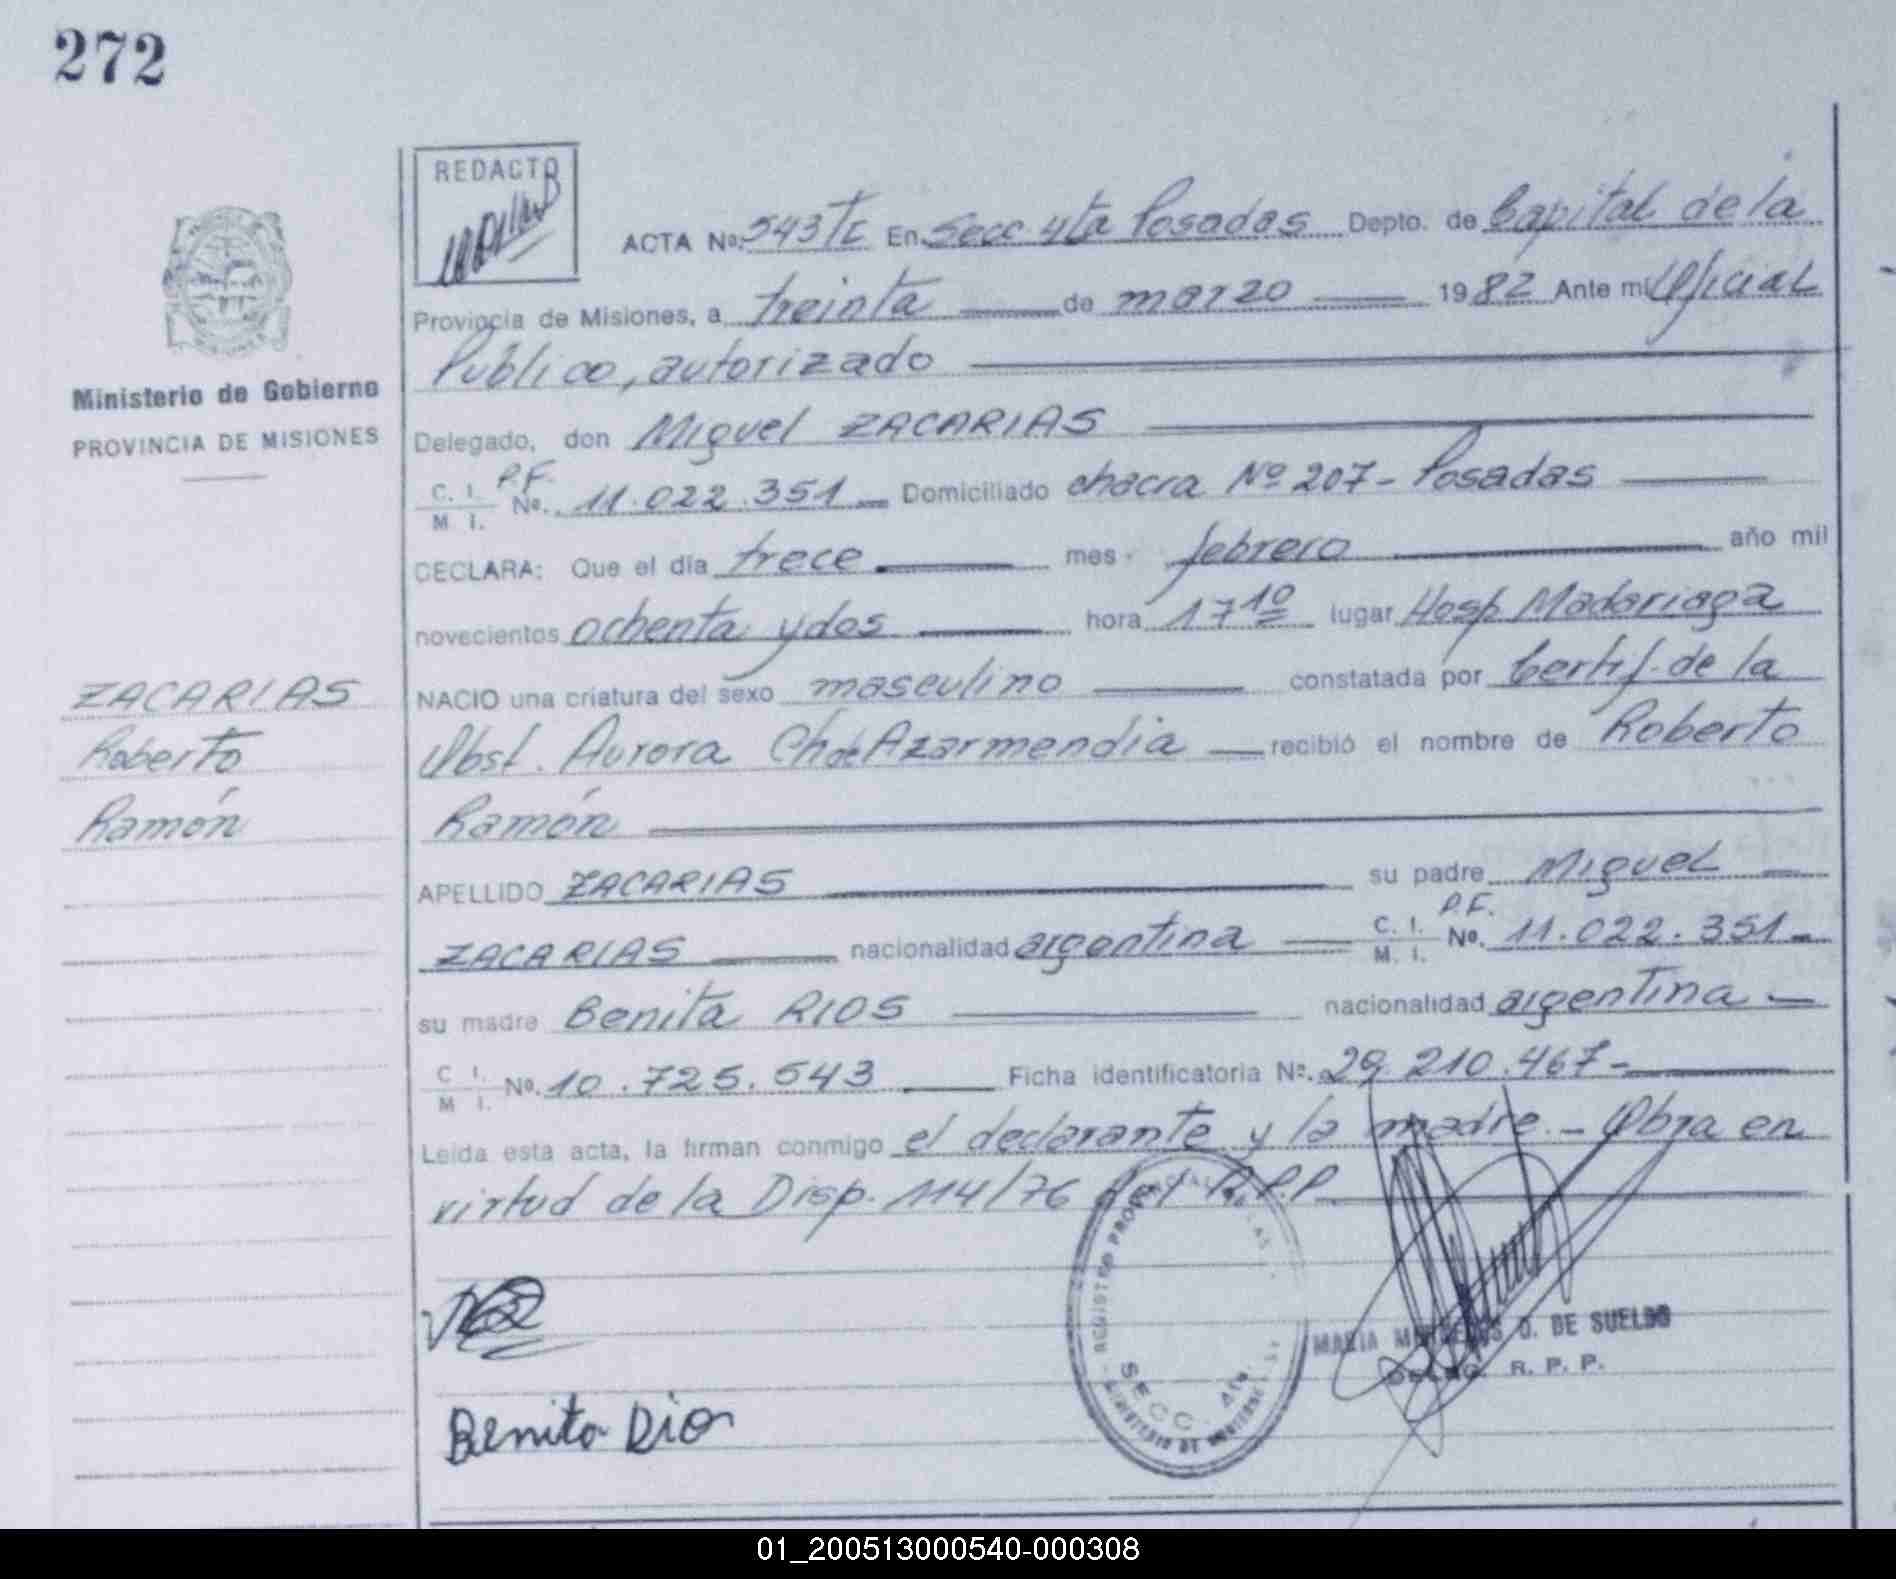 272
REDACTO
ACTA No. 543 TE En Secc. 4ta Posadas Depto. de Capital de la
Provincia de Misiones, a treinta de marzo 1982 Ante mi Oficial
Público, autorizado
Ministerio de Gobierno
PROVINCIA DE MISIONES
Delegado, don Miguel ZACARIAS
P.F.
C. I.
M I. No. 11.022.351 Domiciliado chacra Nº 207 - Posadas
DECLARA: Que el día trece mes febrero año mil
novecientos ochenta y dos hora 17 10 lugar Hosp. Madariaga
NACIO una criatura del sexo masculino constatada por Certif. de la
Obst. Aurora Ch de Azarmendia recibió el nombre de Roberto
Ramón
ZACARIAS
Roberto
Ramón
APELLIDO ZACARIAS su padre Miguel
P.F.
ZACARIAS nacionalidad argentina C. I. M. I. No. 11.022.351
su madre Benita RIOS nacionalidad argentina
C I. M I. No. 10.725.543 Ficha identificatoria Nº. 29.210.467-
Leída esta acta, la firman conmigo el declarante y la madre. - Obra en
virtud de la Disp. 114/76 del R.P.P.
REGISTRO PROVINCIAL DE LAS
SECC. 4ta.
MINISTERIO DE GOBIERNO
MARIA O. DE SUELDO
DELEG. R. P. P.
Benita Rio
01_200513000540-000308